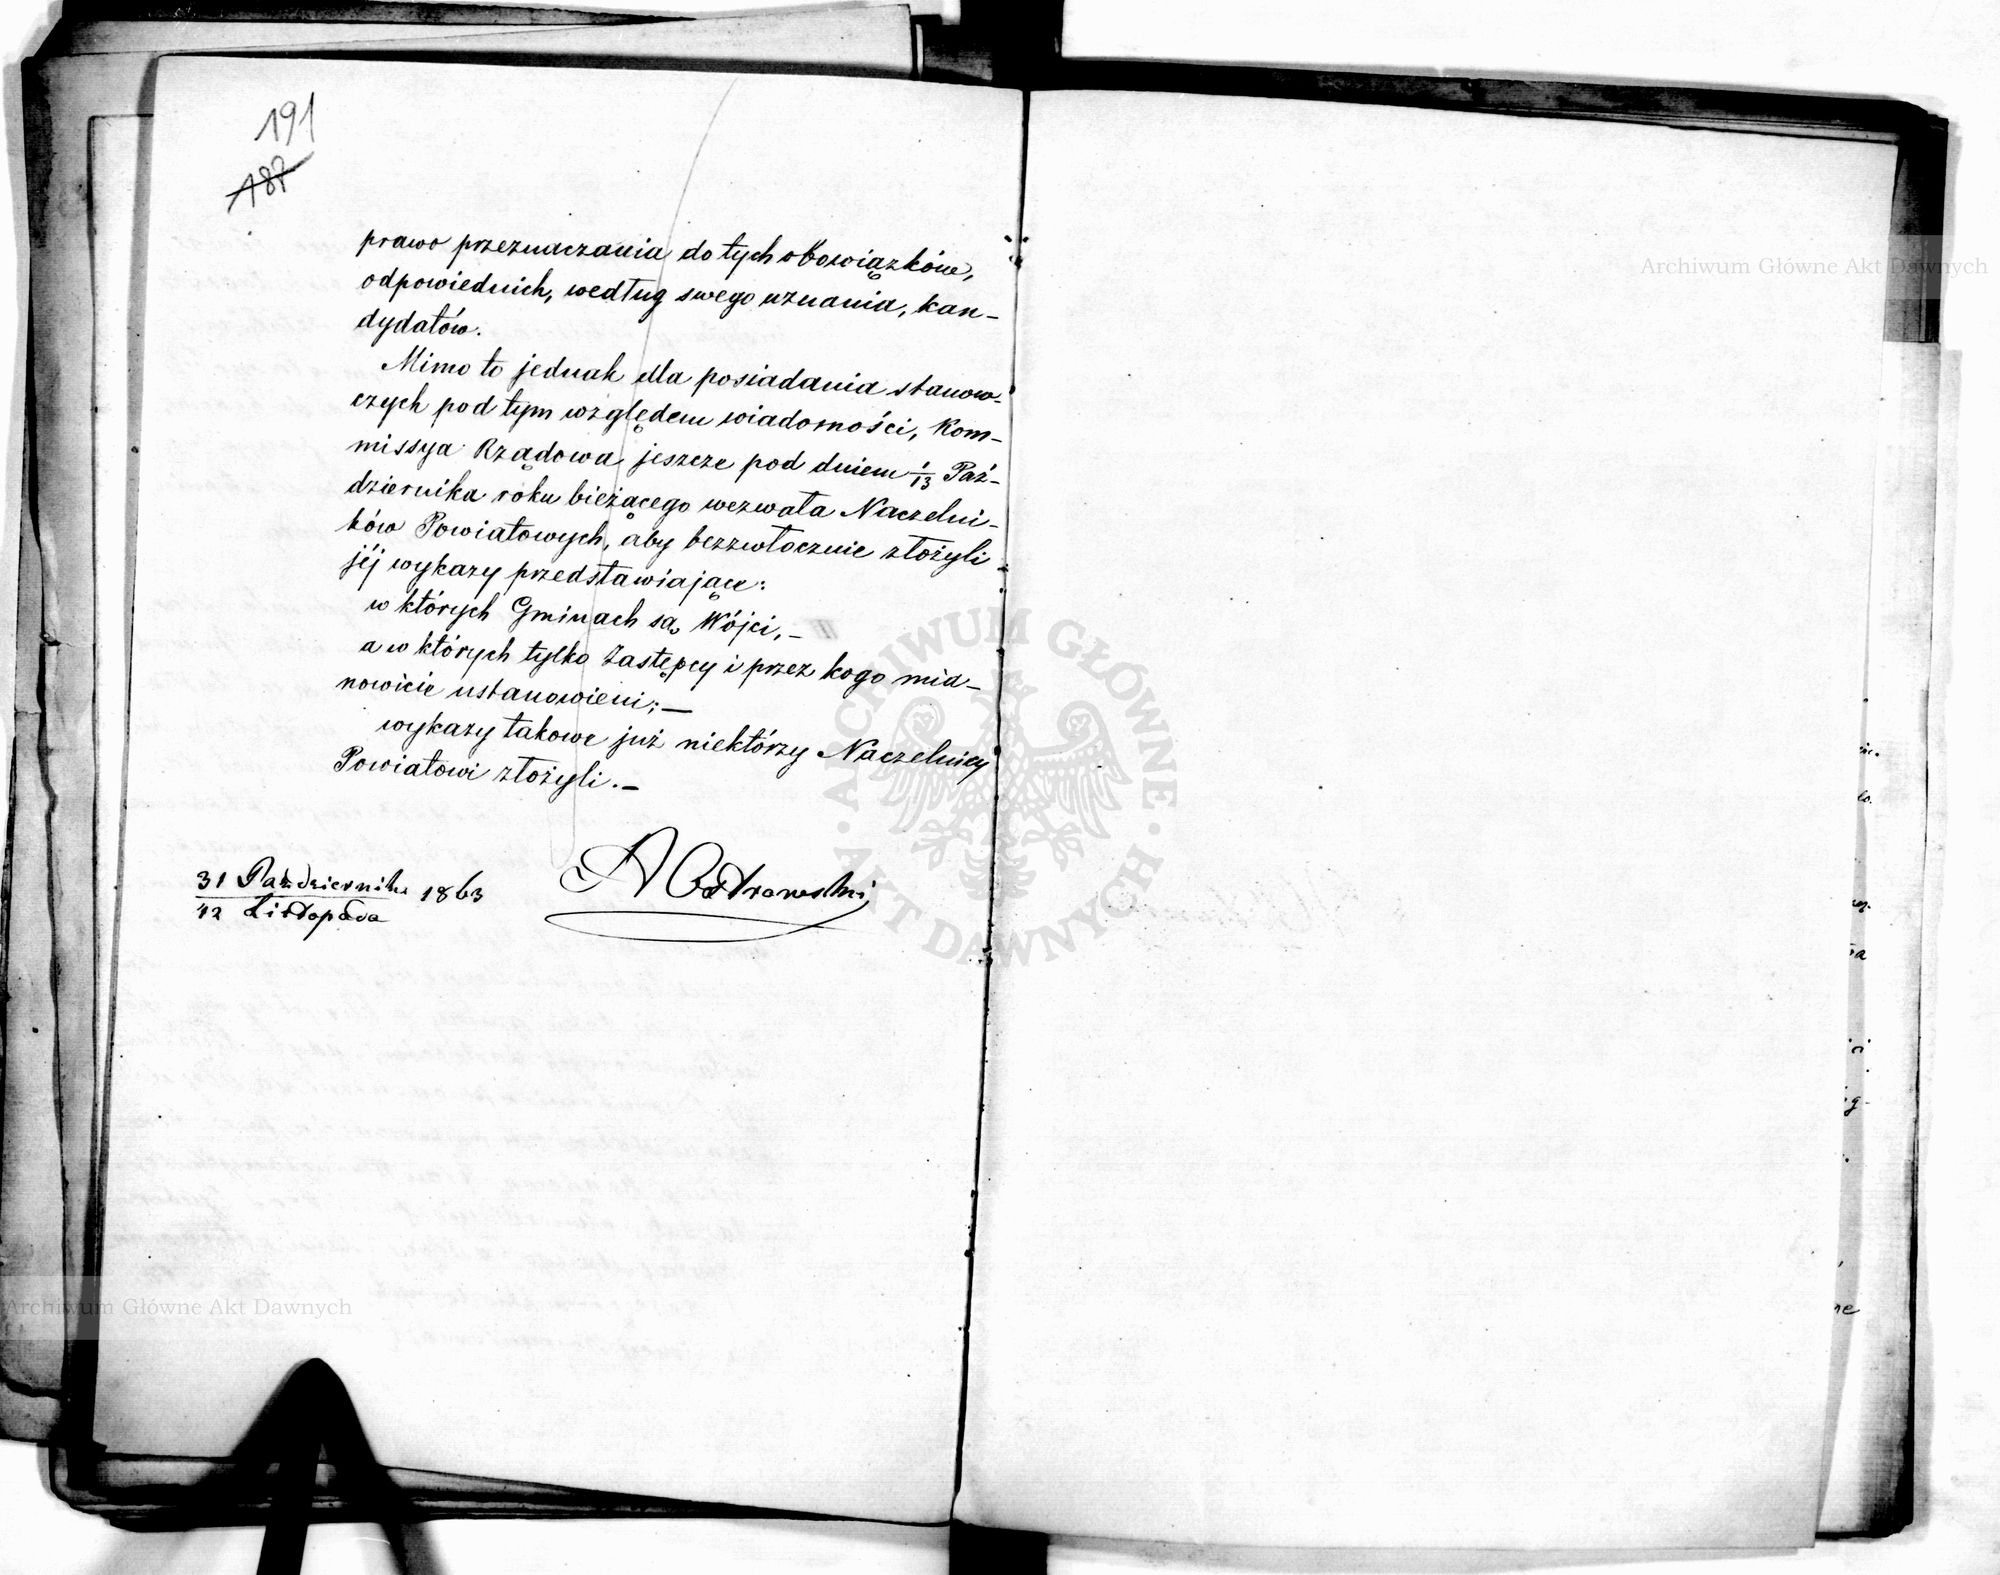 191
187
prawo przeznaczania do tych obowiązków,
odpowiednich, według swego uznania, kan-
dydatów.
Mimo to jednak dla posiadania stanow-
czych pod tym względem wiadomości, Kom-
missya Rządowa jeszcze pod dniem 1/13 Paź-
dziernika roku bieżącego wezwała Naczelni-
ków Powiatowych, aby bezzwłocznie złożyli
jéj wykazy przedstawiające:
w których Gminach są Wójci,_
a w których tylko Zastępcy i przez kogo mia-
nowicie ustanowieni;_
wykazy takowe już niektórzy Naczelnicy
Powiatowi złożyli._
31 Października 1863
12 Listopada
AOstrowski
Archiwum Główne Akt Dawnych
Archiwum Główne Akt Dawnych
ARCHIWUM GŁÓWNE · AKT DAWNYCH ·